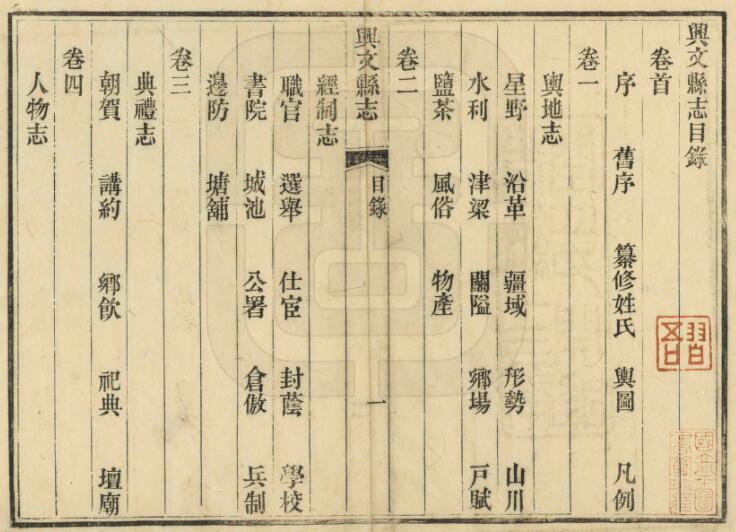 興文縣志目錄
卷首
序 舊序 纂修姓氏 輿圖 凡例
卷一
輿地志
星野 沿革 疆域 形勢 山川
水利 津梁 關隘 鄉場 戸賦
鹽茶 風俗 物產
卷二
興文縣志 目錄 一
經制志
職官 選舉 仕宦 封蔭 學校
書院 城池 公署 倉儌 兵制
邊防 塘舖
卷三
典禮志
朝賀 講約 鄉飮 祀典 壇廟
卷四
人物志